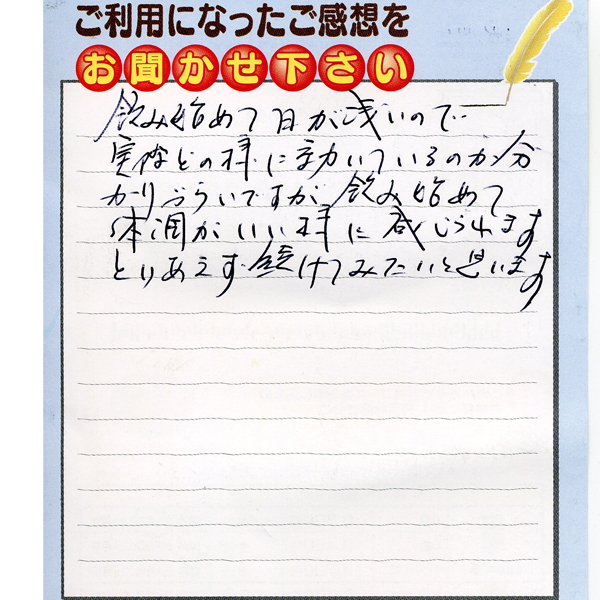 ご利用になったご感想を
お聞かせ下さい
飲み始めて日が浅いので
実際どの様に動いているのか分
かりづらいですが、飲み始めて
体調がいい様に感じられます
とりあえず続けてみたいと思います